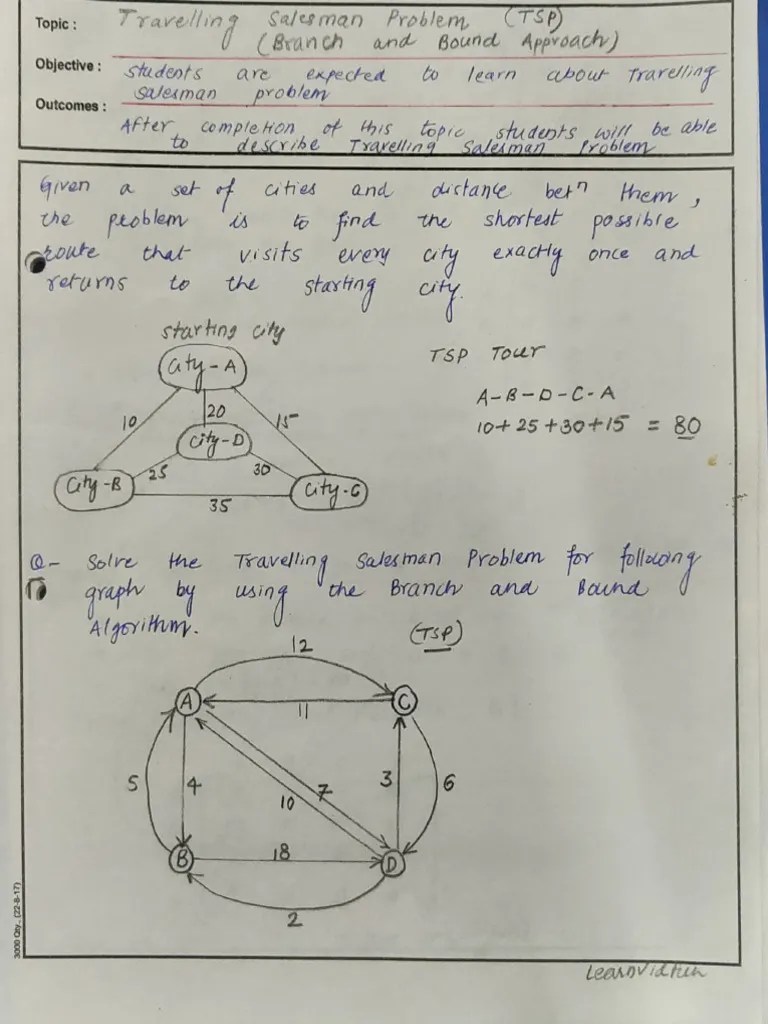 Topic : Travelling Salesman Problem (TSP)
(Branch and Bound Approach)
Objective : students are expected to learn about Travelling
salesman problem
Outcomes :
After completion of this topic students will be able
to describe Travelling Salesman Problem
Given a set of cities and distance betⁿ them,
the problem is to find the shortest possible
route that visits every city exactly once and
returns to the starting city.
starting city
City-A
TSP Tour
A-B-D-C-A
10+25+30+15 = 80
10
20
15
City-D
25
30
City-B
City-C
35
Q- Solve the Travelling Salesman Problem for following
graph by using the Branch and Bound
Algorithm. (TSP)
12
A
C
11
5
4
7
10
3
6
B
18
D
2
3000 Qty., (22-8-17)
LearnVidFun